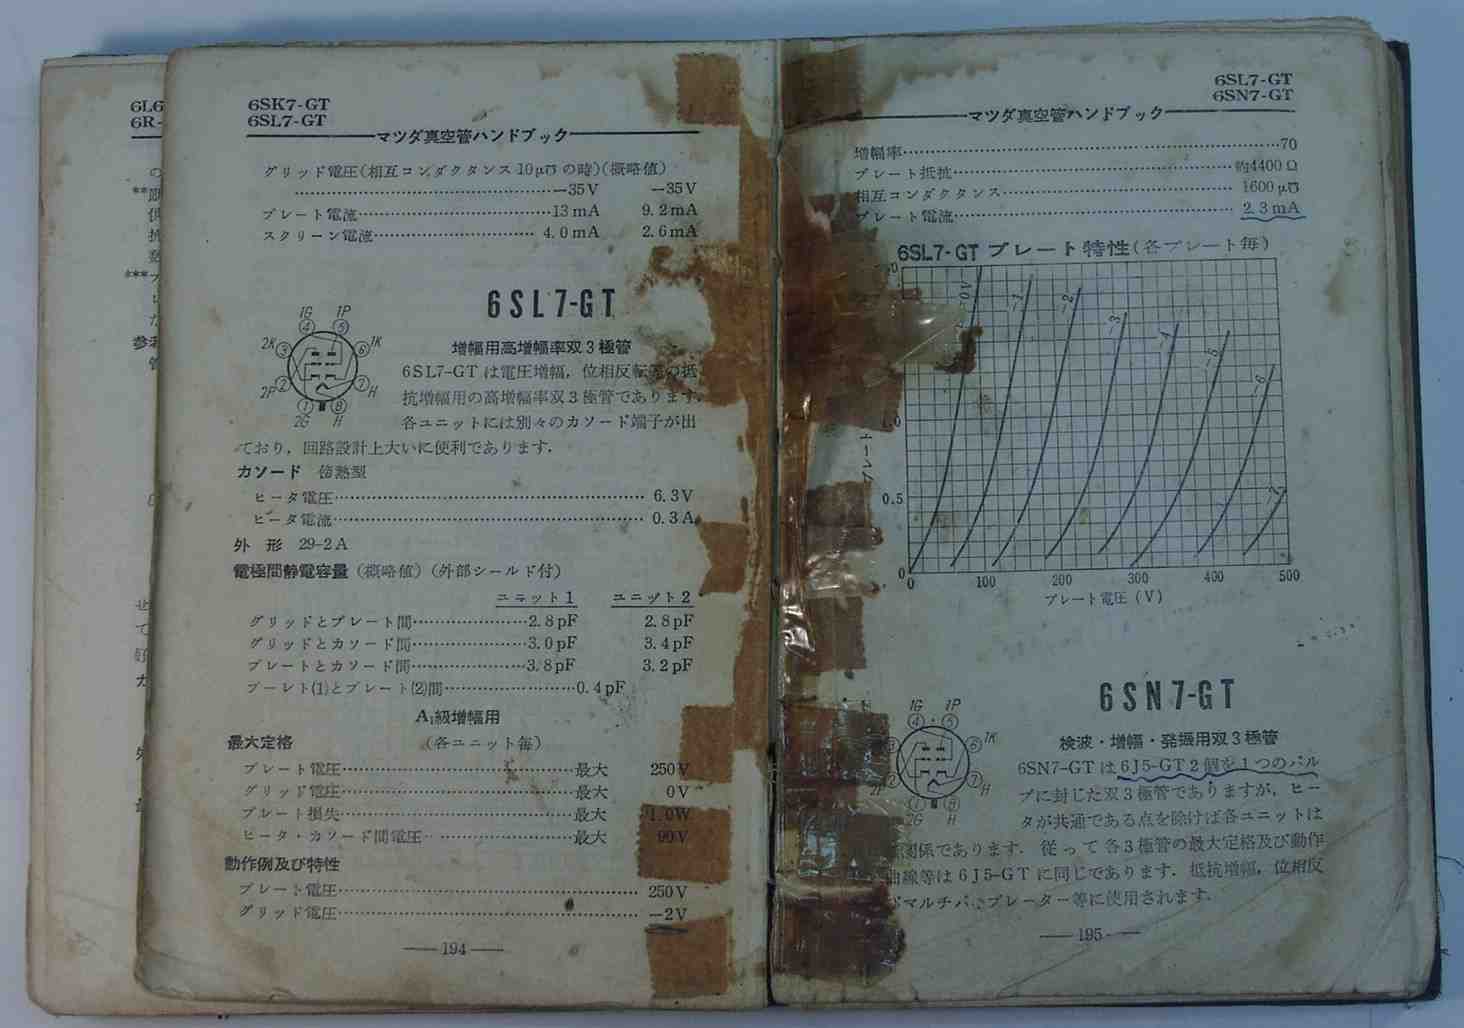 6L6
6R-
の
**
**
***
参考
管
6SK7-GT
6SL7-GT
マツダ真空管ハンドブック
グリッド電圧(相互コンダクタンス10μ℧の時)(概略値)
−35V −35V
プレート電流 13mA 9.2mA
スクリーン電流 4.0mA 2.6mA
6SL7-GT
増幅用高増幅率双3極管
1G 1P
4 5
2K 3 6 1K
2P 2 7 H
1 8
2G H
6SL7-GTは電圧増幅,位相反転
抵
抗増幅用の高増幅率双3極管であります.
各ユニットには別々のカソード端子が出
ており,回路設計上大いに便利であります.
カソード 傍熱型
ヒータ電圧 6.3V
ヒータ電流 0.3A
外 形 29-2A
電極間静電容量(概略値)(外部シールド付)
ユニット1 ユニット2
グリッドとプレート間 2.8pF 2.8pF
グリッドとカソード間 3.0pF 3.4pF
プレートとカソード間 3.8pF 3.2pF
プーレト(1)とプレート(2)間 0.4pF
A₁級増幅用
最大定格 (各ユニット毎)
プレート電圧 最大 250V
グリッド電圧 最大 0V
プレート損失 最大 1.0W
ヒータ・カソード間電圧 最大 90V
動作例及び特性
プレート電圧 250V
グリッド電圧 −2V
194
6SL7-GT
6SN7-GT
マツダ真空管ハンドブック
増幅率 70
プレート抵抗 約4400Ω
相互コンダクタンス 1600μ℧
プレート電流 2.3mA
6SL7-GT プレート特性(各プレート毎)
0V −1 −2 −3 −4 −5 −6 −7
0.5
0
100 200 300 400 500
プレート電圧(V)
6SN7-GT
検波・増幅・発振用双3極管
1G 1P
4 5
3 6 1K
2P 2 7 H
1 8
2G H
6SN7-GTは6J5-GT2個を1つのバル
ブに封じた双3極管でありますが,ヒー
タが共通である点を除けば各ユニットは
関係であります.従って各3極管の最大定格及び動作
曲線等は6J5-GTに同じであります.抵抗増幅,位相反
マルチバイブレーター等に使用されます.
195